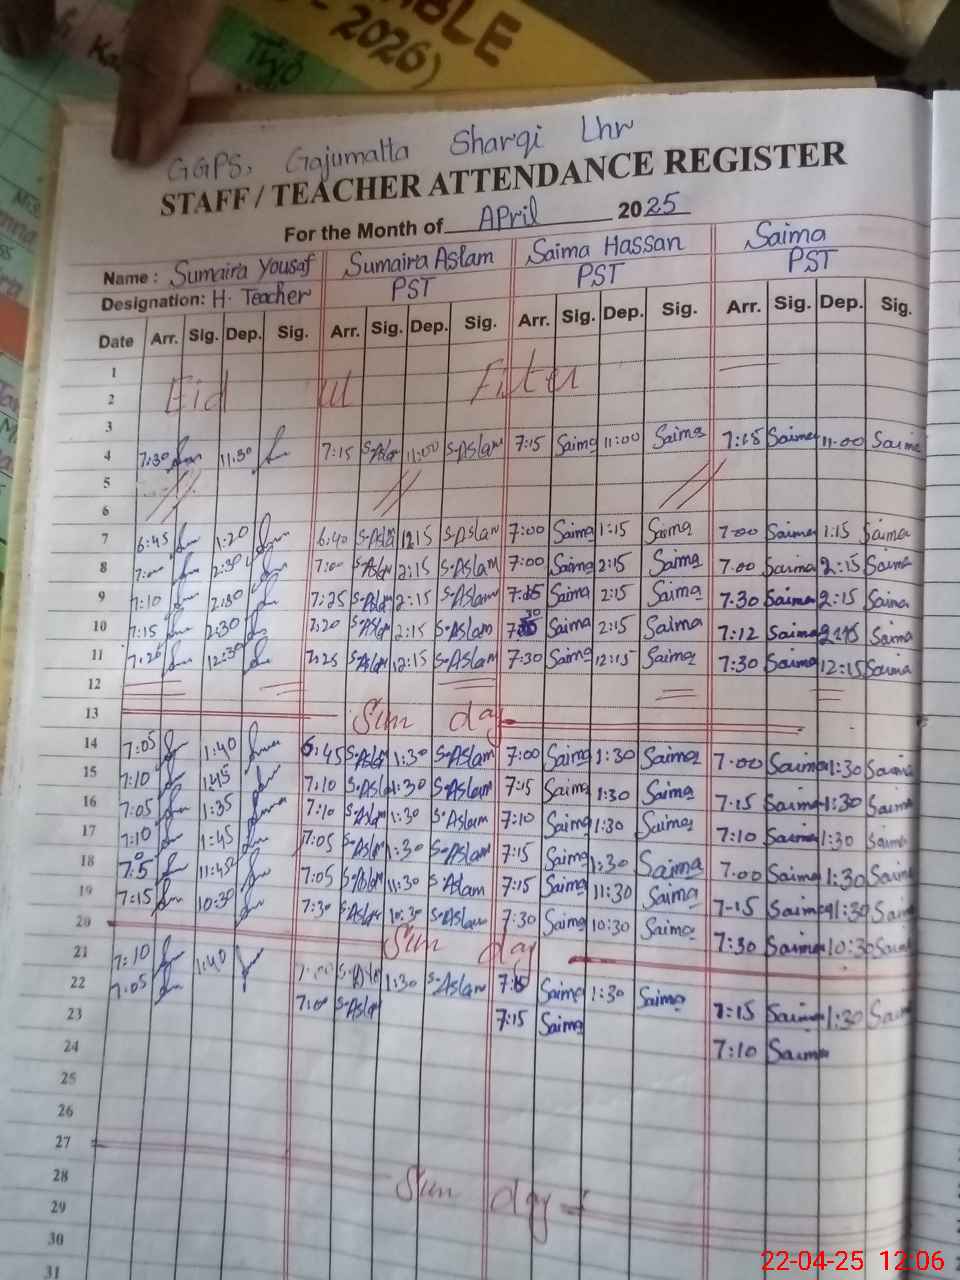 ABLE
- 2026)
Two
GGPS, Gajumatta Sharqi Lhr
STAFF / TEACHER ATTENDANCE REGISTER
For the Month of April 2025
Name : Sumaira Yousaf Sumaira Aslam Saima Hassan Saima
Designation: H. Teacher PST PST PST
Date Arr. Sig. Dep. Sig. Arr. Sig. Dep. Sig. Arr. Sig. Dep. Sig. Arr. Sig. Dep. Sig.
1
2 Eid ul Fiter
3
4 7:30 11:30 7:15 S-Aslam 11:00 S-Aslam 7:15 Saima 11:00 Saima 7:15 Saima 11:00 Saima
5
6
7 6:45 1:20 6:40 S-Aslam S-Aslam 7:00 Saima 1:15 Saima 7:00 Saima 1:15 Saima
8 7:00 2:30 7:00 S-Aslam 2:15 S-Aslam 7:00 Saima 2:15 Saima 7:00 Saima 2:15 Saima
9 7:10 2:30 7:25 S-Aslam 2:15 S-Aslam Saima 2:15 Saima 7:30 Saima 2:15 Saima
10 7:15 2:30 7:20 S-Aslam 2:15 S-Aslam Saima 2:15 Saima 7:12 Saima Saima
11 7:25 12:30 7:25 S-Aslam 12:15 S-Aslam 7:30 Saima 12:15 Saima 7:30 Saima 12:15 Saima
12
13 Sun day
14 7:05 1:40 6:45 S-Aslam 1:30 S-Aslam 7:00 Saima 1:30 Saima 7:00 Saima 1:30 Saima
15 7:10 1:45 7:10 S-Aslam 1:30 S-Aslam 7:15 Saima 1:30 Saima 7:15 Saima 1:30 Saima
16 7:05 1:35 7:10 S-Aslam 1:30 S-Aslam 7:10 Saima 1:30 Saima 7:10 Saima 1:30 Saima
17 7:10 1:45 7:05 S-Aslam 1:30 S-Aslam 7:15 Saima 1:30 Saima 7:00 Saima 1:30 Saima
18 11:45 7:05 S-Aslam 11:30 S-Aslam 7:15 Saima 11:30 Saima 7:15 Saima 11:30 Saima
19 7:15 10:30 7:30 S-Aslam 10:30 S-Aslam 7:30 Saima 10:30 Saima 7:30 Saima 10:30 Saima
20 Sun day
21 7:10 1:40 S-Aslam 1:30 S-Aslam Saima 1:30 Saima 7:15 Saima 1:30 Saima
22 7:05 7:00 S-Aslam 7:15 Saima 7:10 Saima
23
24
25
26
27 Sun day
28
29
30
31
22-04-25 12:06